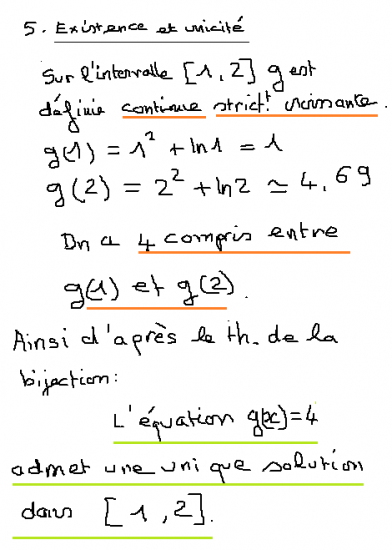 5. Existence et unicité
Sur l'intervalle [1,2] g est
définie continue strict! croissante.
g(1) = 1² + ln1 = 1
g(2) = 2² + ln2 ≃ 4,69
On a 4 compris entre
g(1) et g(2).
Ainsi d'après le th. de la
bijection:
L'équation g(x)=4
admet une unique solution
dans [1,2].